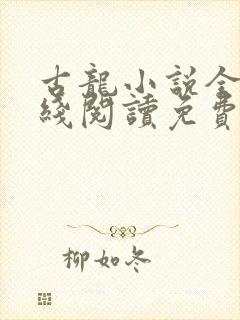 古龍小説全
綫閱讀免費
柳如冬